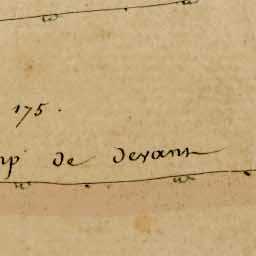 175.
mp de devant